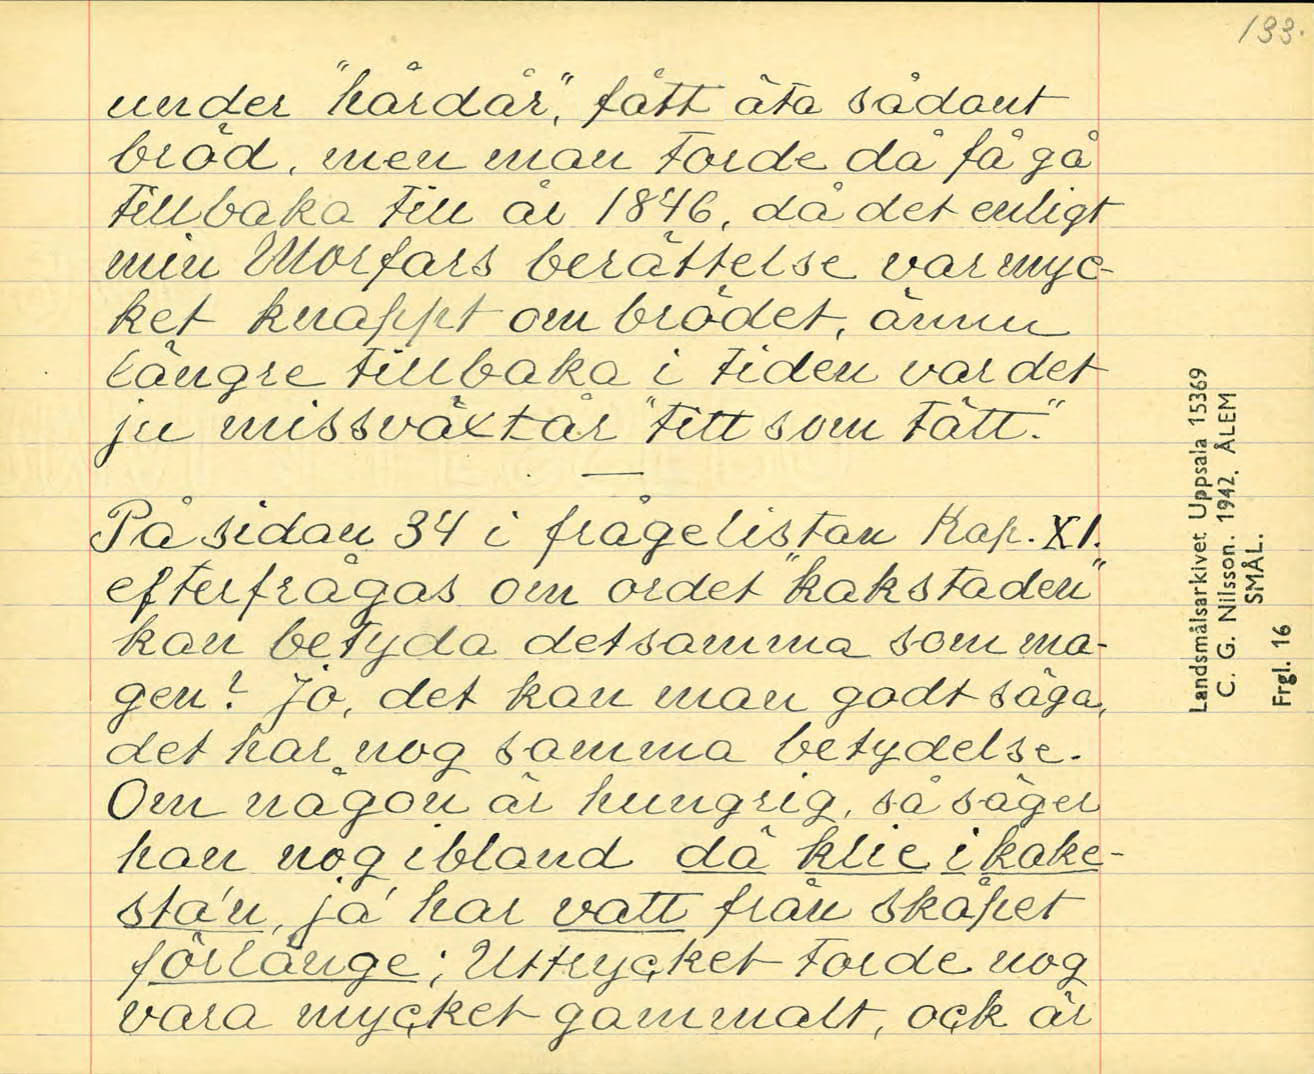 133.
under "hårdår", fått äta sådant
bröd, men man torde då få gå
tillbaka till år 1846, då det enligt
min Morfars berättelse var myc-
ket knappt om brödet, ännu
längre tillbaka i tiden var det
ju missväxtår "titt som tätt".
På sidan 34 i frågelistan Kap. XI.
efterfrågas om ordet "kakstaden"
kan betyda detsamma som ma-
gen? Jo, det kan man godt säga,
det har nog samma betydelse.
Om någon är hungrig, så säger
han nog ibland då klie i kake-
sta'n, ja' har vatt från skåpet
förlänge; Uttrycket torde nog
vara mycket gammalt, ock är
Landsmålsarkivet Uppsala 15369
C. G. Nilsson. 1942. ÅLEM
SMÅL.
Frgl. 16